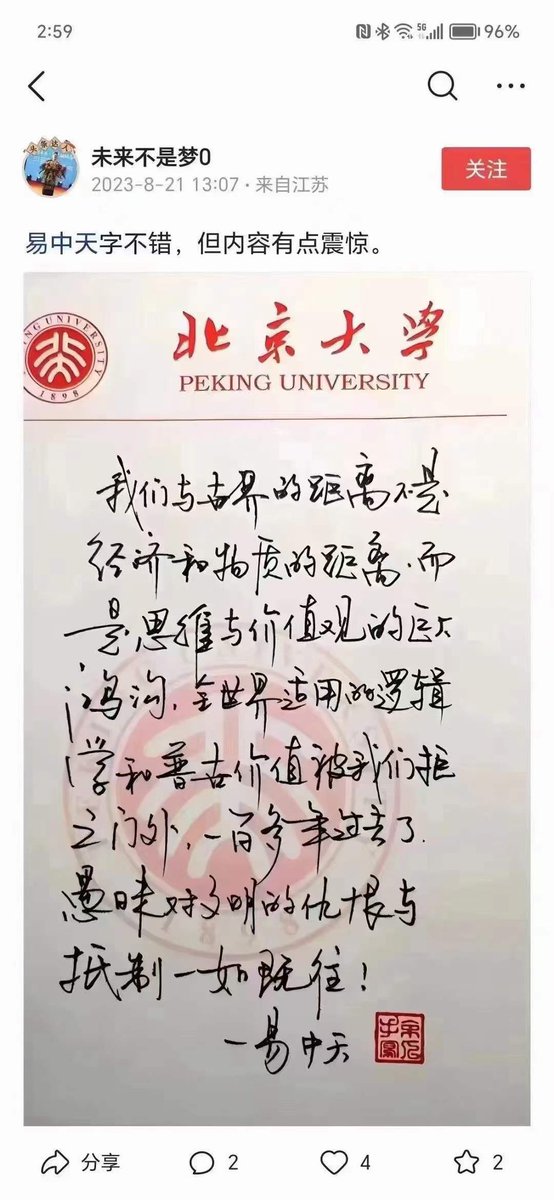 2:59
5G
96%
未来不是梦0
2023-8-21 13:07 · 来自江苏
关注
易中天字不错，但内容有点震惊。
KING UNIVERSITY
1898
北京大学
PEKING UNIVERSITY
我们与世界的距离不是
经济和物质的距离，而
是思维与价值观的巨大
鸿沟，全世界适用的逻辑
学和普世价值被我们拒
之门外，一百多年过去了，
愚昧对文明的仇恨与
抵制一如既往！
—易中天
分享
2
4
2